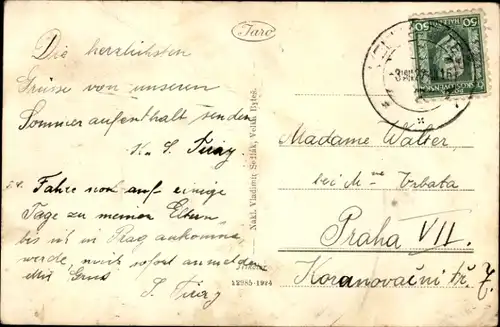 Die herzlichsten
Grüsse von unseren
Sommeraufenthalt senden
K. u. S.
Fahre noch auf einige
Tage zu meinen Eltern
bis ich in Prag ankomme,
werde mich sofort anmelden
Mit Gruss
S.
Taro
Nakl. Vladimír Sedlák, Velká Byteš.
52985-1924
50
50
HALEŘŮ
Madame Walter,
bei Mme Vrbata
Praha VII.
Koranovační tř. 7.